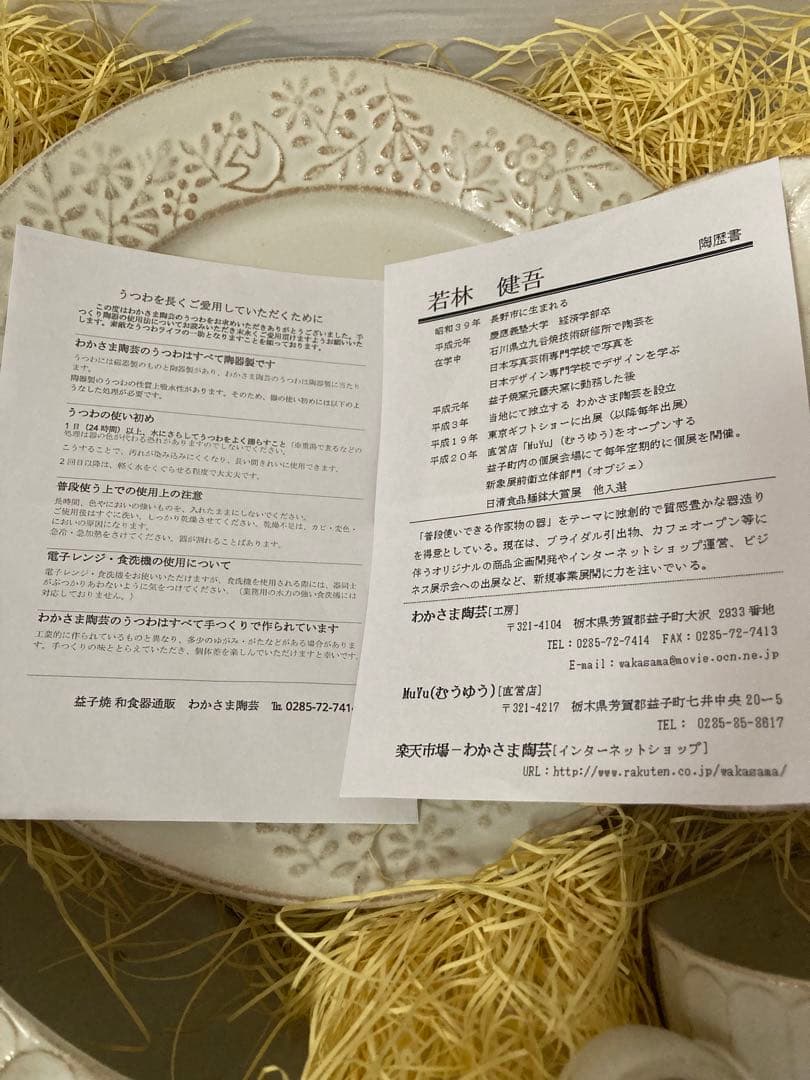 うつわを長くご愛用していただくために
この度はわかさま陶芸のうつわをお求めいただきありがとうございました。手
つくり陶器の使用法についてお読みいただき末永くご愛用頂けますようお願いいた
します。素敵なうつわライフの一助となりますことを願っております。
わかさま陶芸のうつわはすべて陶器製です
うつわには磁器製のものと陶器製があり、わかさま陶芸のうつわは陶器製に当たり
ます。
陶器製のうつわの性質上吸水性があります。そのため、器の使い初めには以下のよ
うなした処理が必要です。
うつわの使い初め
1日(24時間)以上、水にさらしてうつわをよく濡らすこと
処理は器の色が代わる恐れがありますのでしないでください。
こうすることで、汚れが染み込みにくくなり、長い間きれいに使用できます。
2回目以降は、軽く水をくぐらせる程度で大丈夫です。
普段使う上での使用上の注意
長時間、色やにおいの強いものを、入れたままにしないでください。
ご使用後はすぐに洗い、しっかり乾燥させてください。乾燥不足は、カビ・変色・
においの原因になります。
急冷・急加熱をさけてください。器が割れることがあります。
電子レンジ・食洗機の使用について
電子レンジ・食洗機をお使いいただけますが、食洗機を使用される際には、器同士
がぶつかりあわないように気をつけてください。(業務用の水力の強い食洗機には
対応しておりません。)
わかさま陶芸のうつわはすべて手つくりで作られています
工業的に作られているものと異なり、多少のゆがみ・がたなどがある場合がありま
す。手つくりの味ととらえていただき、個体差を楽しんでいただけますと幸いです。
益子焼 和食器通販 わかさま陶芸 ℡ 0285-72-741
陶歴書
若林 健吾
昭和39年 長野市に生まれる
平成元年 慶應義塾大学 経済学部卒
在学中 石川県立九谷焼技術研修所で陶芸を
日本写真芸術専門学校で写真を
日本デザイン専門学校でデザインを学ぶ
平成元年 益子焼窯元藤夫窯に勤務した後
平成3年 当地にて独立する わかさま陶芸を設立
平成19年 東京ギフトショーに出展(以降毎年出展)
平成20年 直営店「MuYu」(むうゆう)をオープンする
益子町内の個展会場にて毎年定期的に個展を開催。
新象展前衛立体部門(オブジェ)
日清食品麺鉢大賞展 他入選
「普段使いできる作家物の器」をテーマに独創的で質感豊かな器造り
を得意としている。現在は、ブライダル引出物、カフェオープン等に
伴うオリジナルの商品企画開発やインターネットショップ運営、ビジ
ネス展示会への出展など、新規事業展開に力を注いでいる。
わかさま陶芸[工房]
〒321-4104 栃木県芳賀郡益子町大沢 2933番地
TEL:0285-72-7414 FAX:0285-72-7413
E-mail:wakasama@movie.ocn.ne.jp
MuYu(むうゆう)[直営店]
〒321-4217 栃木県芳賀郡益子町七井中央 20-5
TEL: 0285-85-8617
楽天市場-わかさま陶芸[インターネットショップ]
URL:http://www.rakuten.co.jp/wakasama/